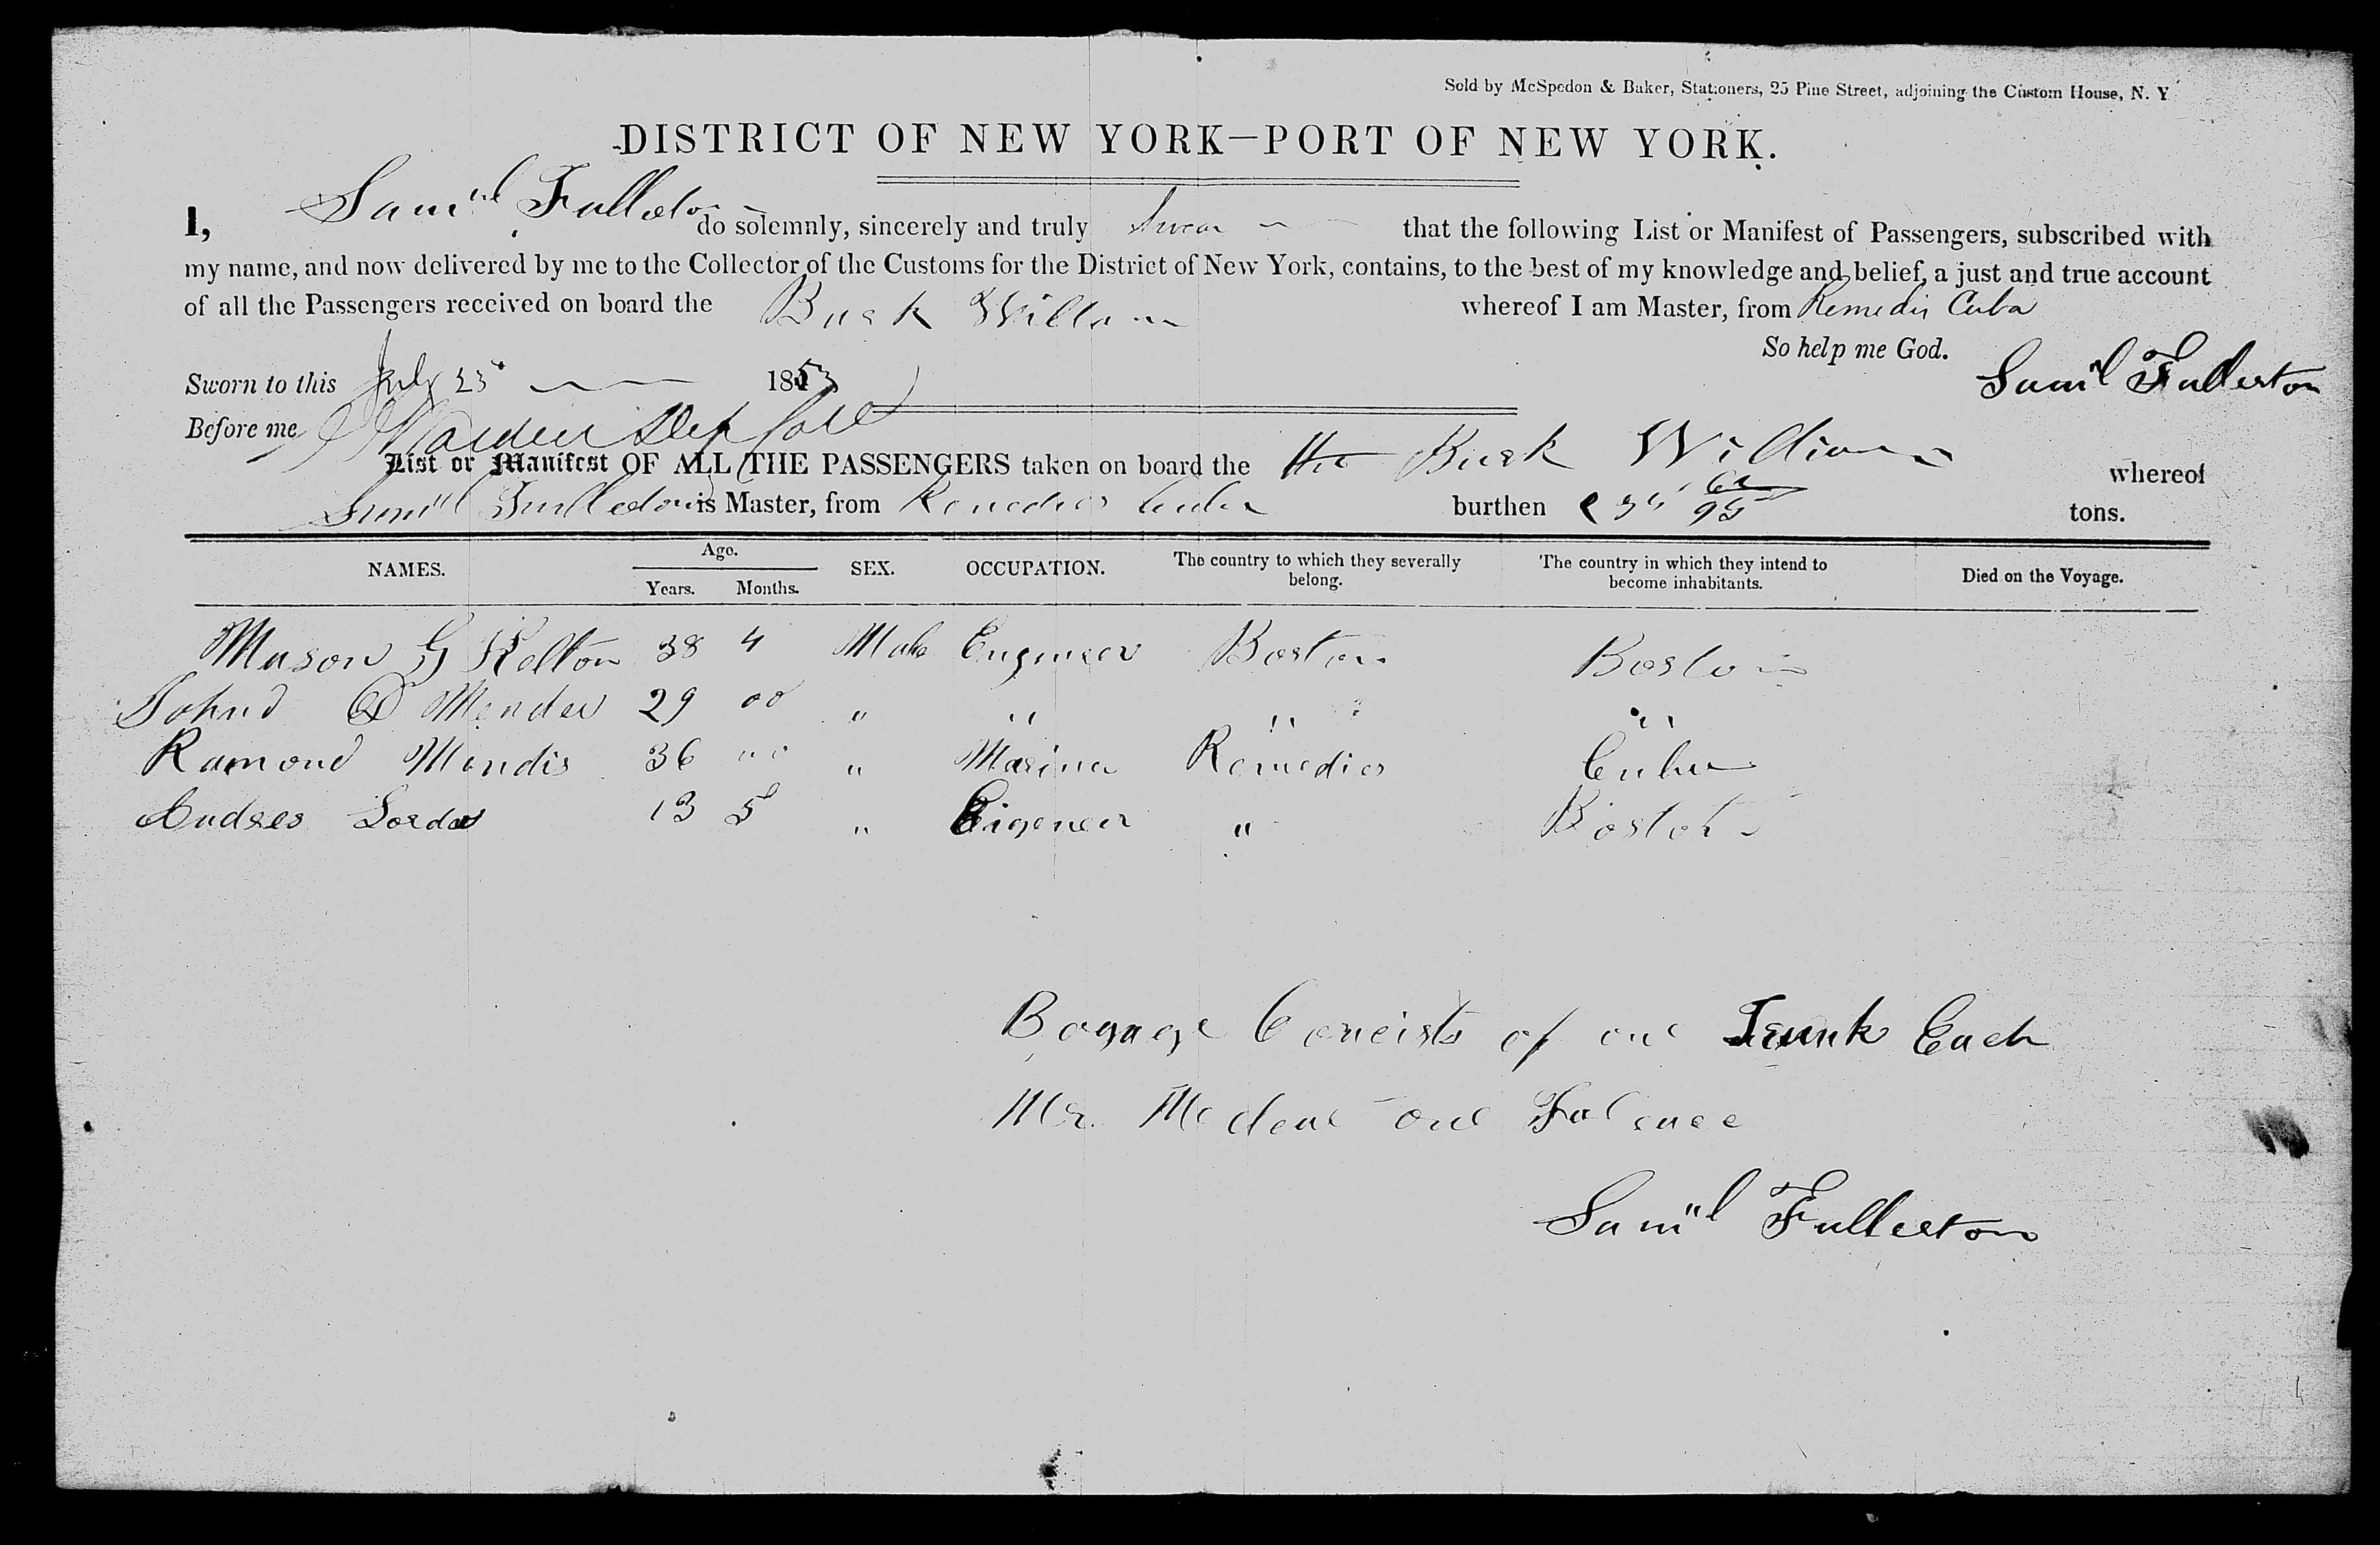 Sold by McSpedon & Baker, Stationers, 25 Pine Street, adjoining the Custom House, N. Y
DISTRICT OF NEW YORK—PORT OF NEW YORK.
I, Samul Fullerton do solemnly, sincerely and truly Swear that the following List or Manifest of Passengers, subscribed with
my name, and now delivered by me to the Collector of the Customs for the District of New York, contains, to the best of my knowledge and belief, a just and true account
of all the Passengers received on board the Bark William whereof I am Master, from Remedis Cuba
So help me God.
Sworn to this July 25 1853 Samul Fullerton
Before me
List or Manifest OF ALL THE PASSENGERS taken on board the the Bark William whereof
Samul Fullerton is Master, from Remedios Cuba burthen tons.
NAMES. Age. SEX. OCCUPATION. The country to which they severally belong. The country in which they intend to become inhabitants. Died on the Voyage.
Years. Months.
Mason G Kelton 38 4 Male Engineer Boston Boston
John D Mender 29 00 " " " "
Ramond Mendis 36 00 " Mariner Remedios Cuba
Andres 13 5 " Eigeneer " Boston
Bagage Concists of one Trunk Each
Mr. one
Samul Fullerton